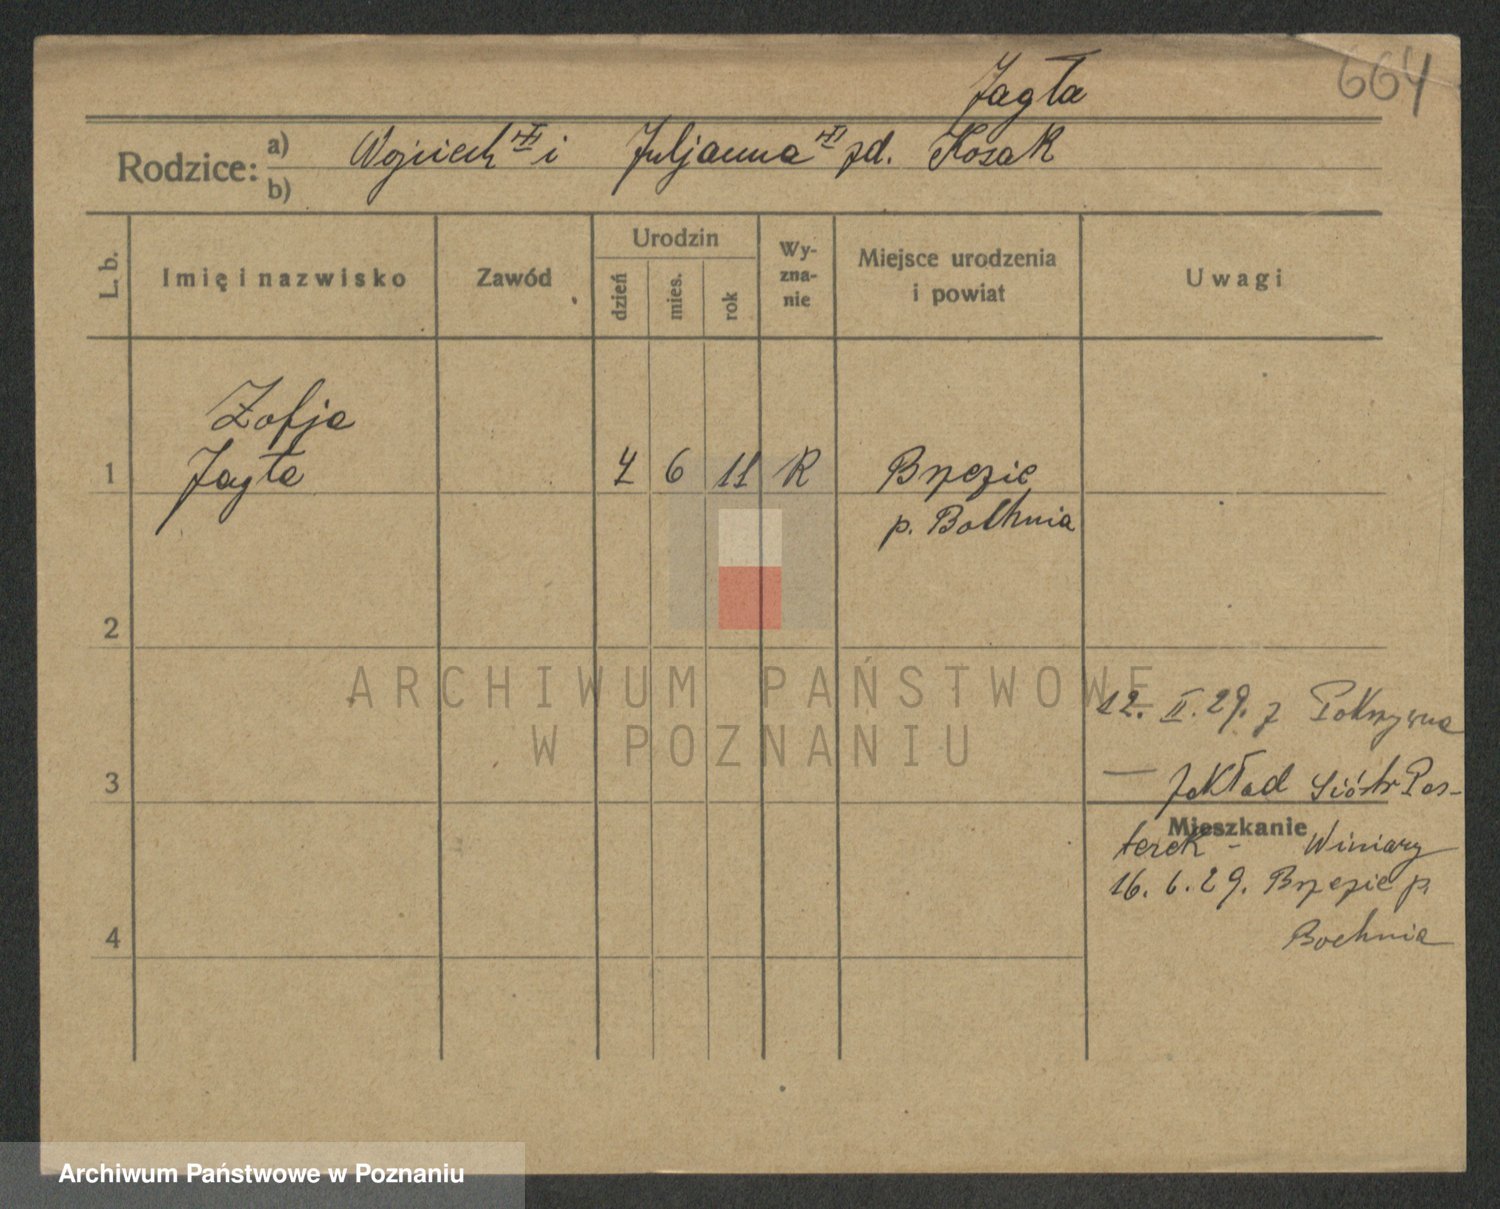 664
Jagła
Rodzice: a) Wojciech i Juljanna zd. Kozak
b)
L. b. Imię i nazwisko Zawód Urodzin dzień mies. rok Wyznanie Miejsce urodzenia i powiat Uwagi
Zofja
1 Jagła 4 6 11 R Brzezie
p. Bochnia
2
ARCHIWUM PAŃSTWOWE
W POZNANIU
12. II. 29. z Pokrzywna
3 — zakład Sióstr Pas-
Mieszkanie
terek - Winiary
16. 6. 29. Brzezie p.
4 Bochnia
Archiwum Państwowe w Poznaniu